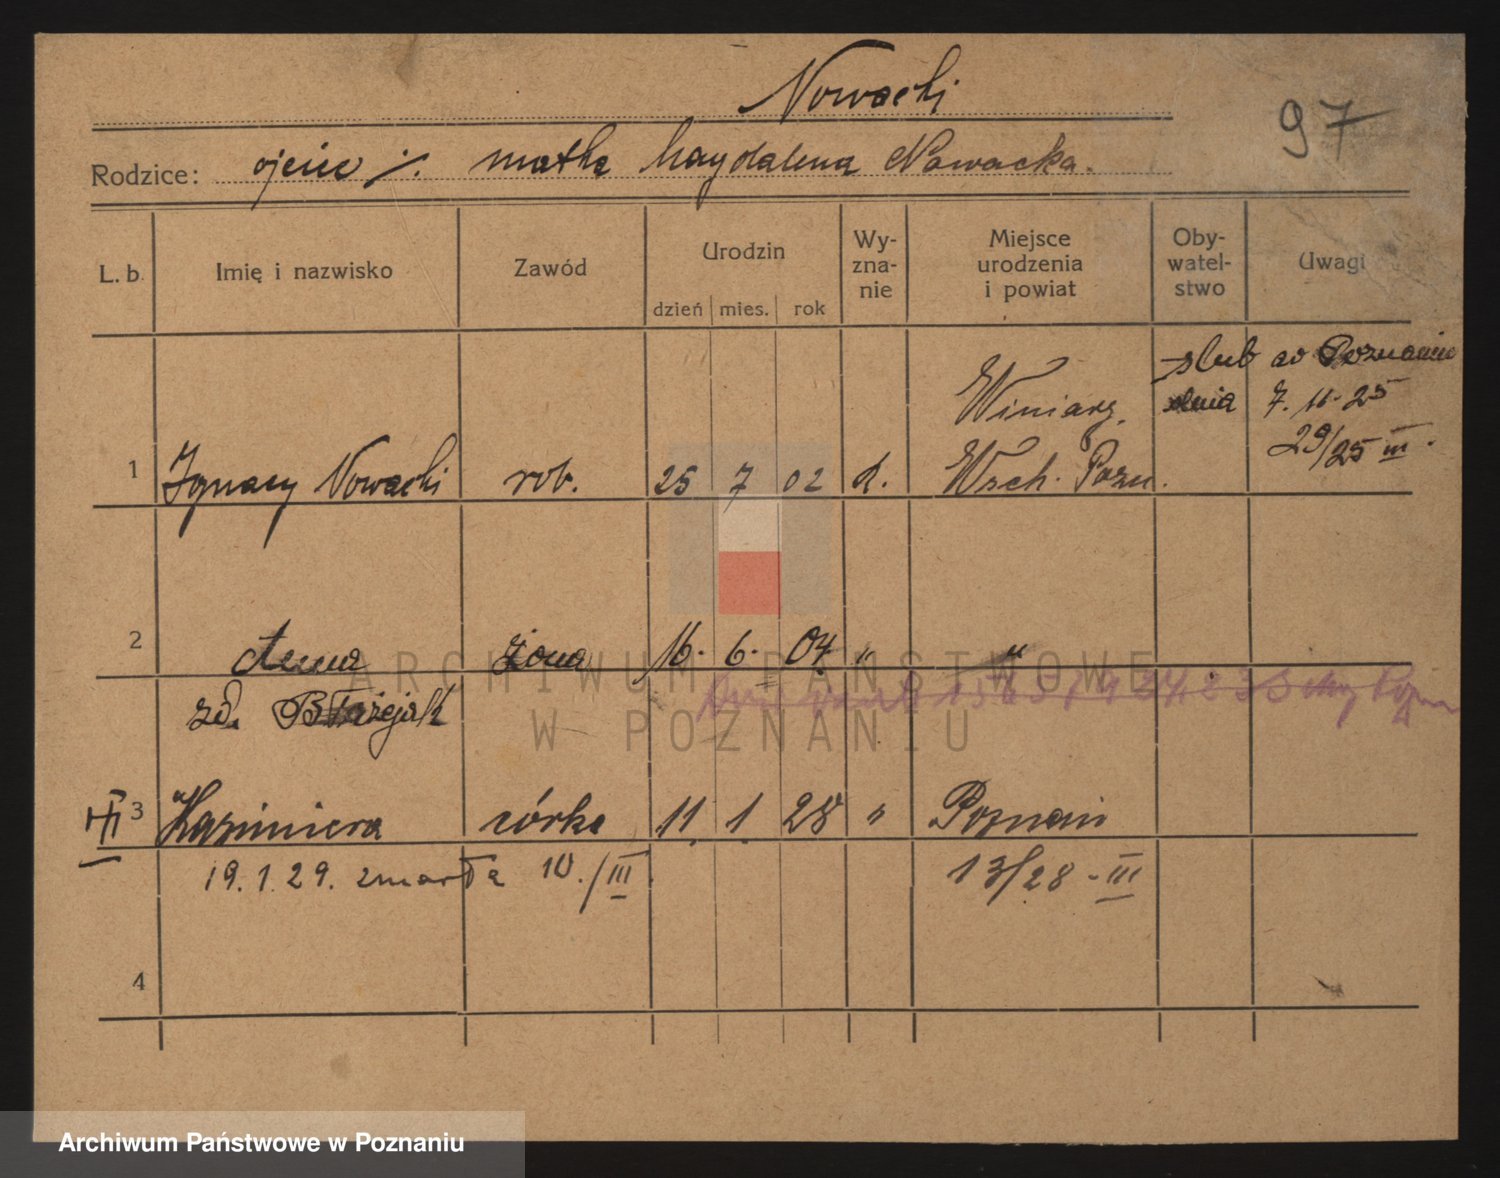 Nowacki
97
Rodzice: ojciec ·/. matka Magdalena Nowacka.
L. b. Imię i nazwisko Zawód Urodzin dzień mies. rok Wy-zna-nie Miejsce urodzenia i powiat Oby-watel-stwo Uwagi
ślub w Poznaniu
dnia 7. 11. 25
29/25 III.
Winiary,
1 Ignacy Nowacki rob. 25 7 02 k. Wsch. Pozn.
2 Anna żona 16. 6. 04 " "
zd. Błażejak
3 Kazimiera córka 11. 1. 28 " Poznań
19. 1. 29. zmarła 10./III 13/28 - III
4
ARCHIWUM PAŃSTWOWE
W POZNANIU
Archiwum Państwowe w Poznaniu